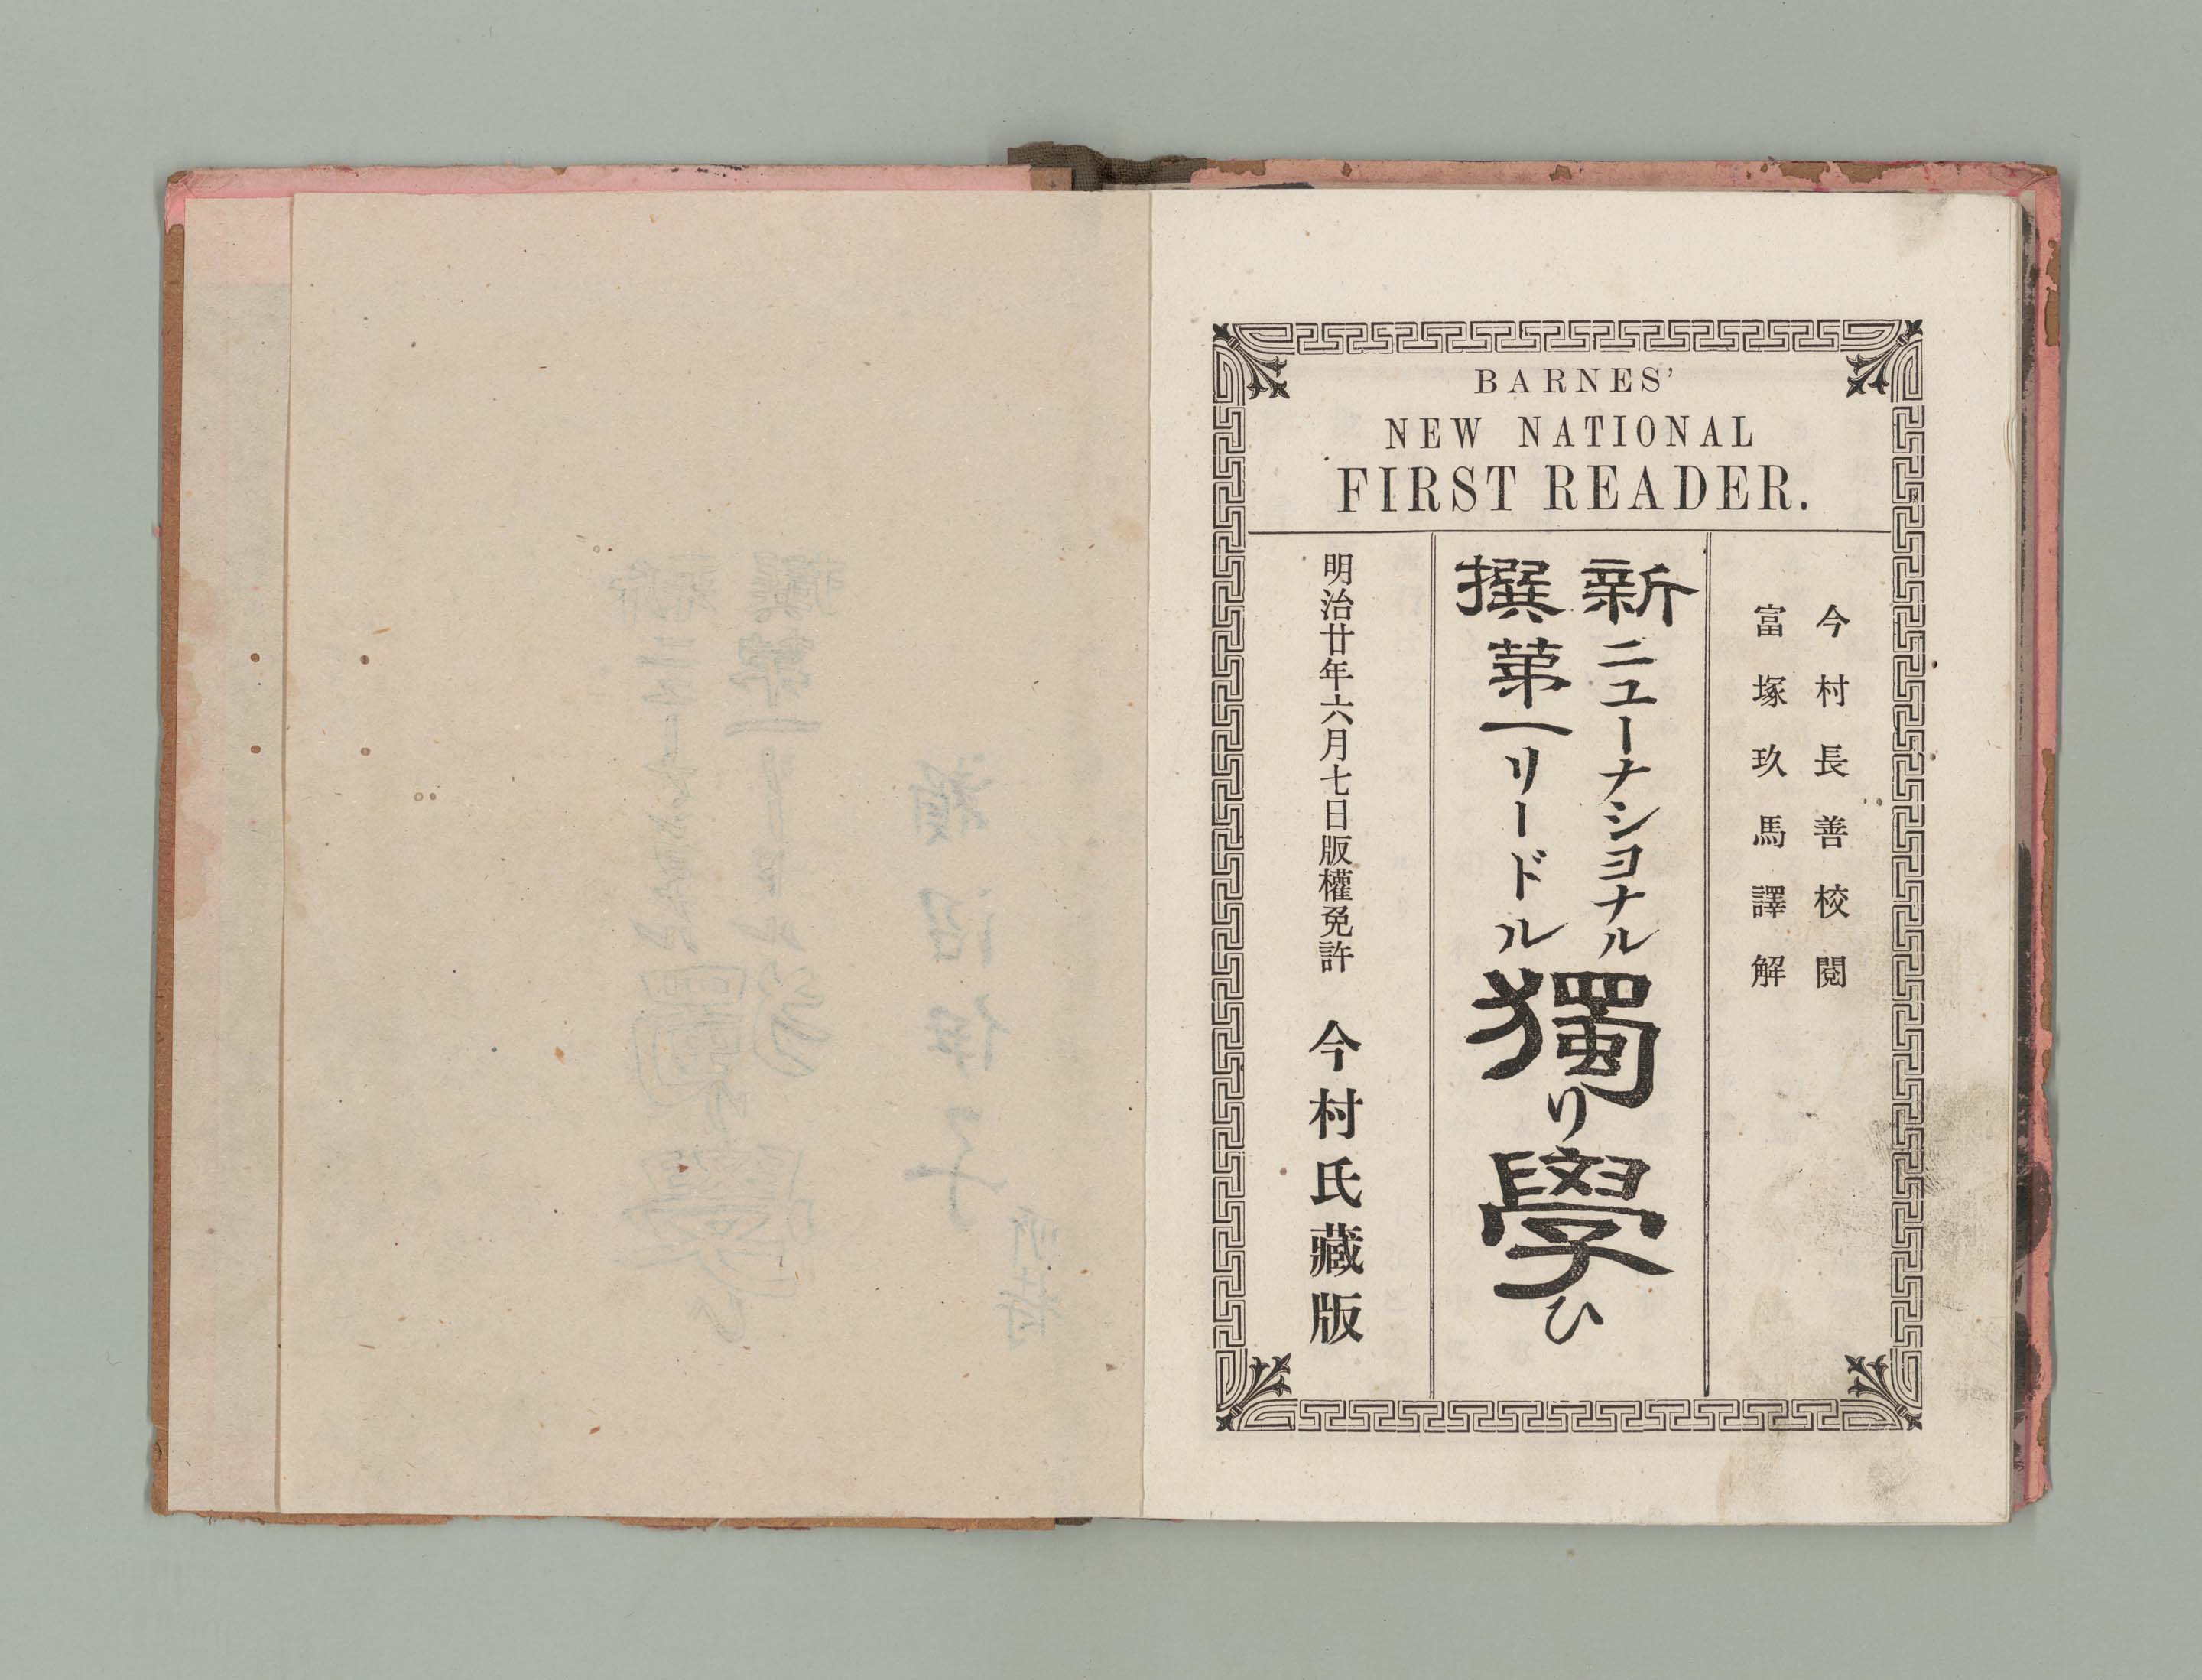 BARNES'
NEW NATIONAL
FIRST READER.
今村長善校閲
富塚玖馬譯解
新撰
ニューナショナル
第一リードル
獨リ學ひ
明治廿年六月七日版權免許
今村氏藏版